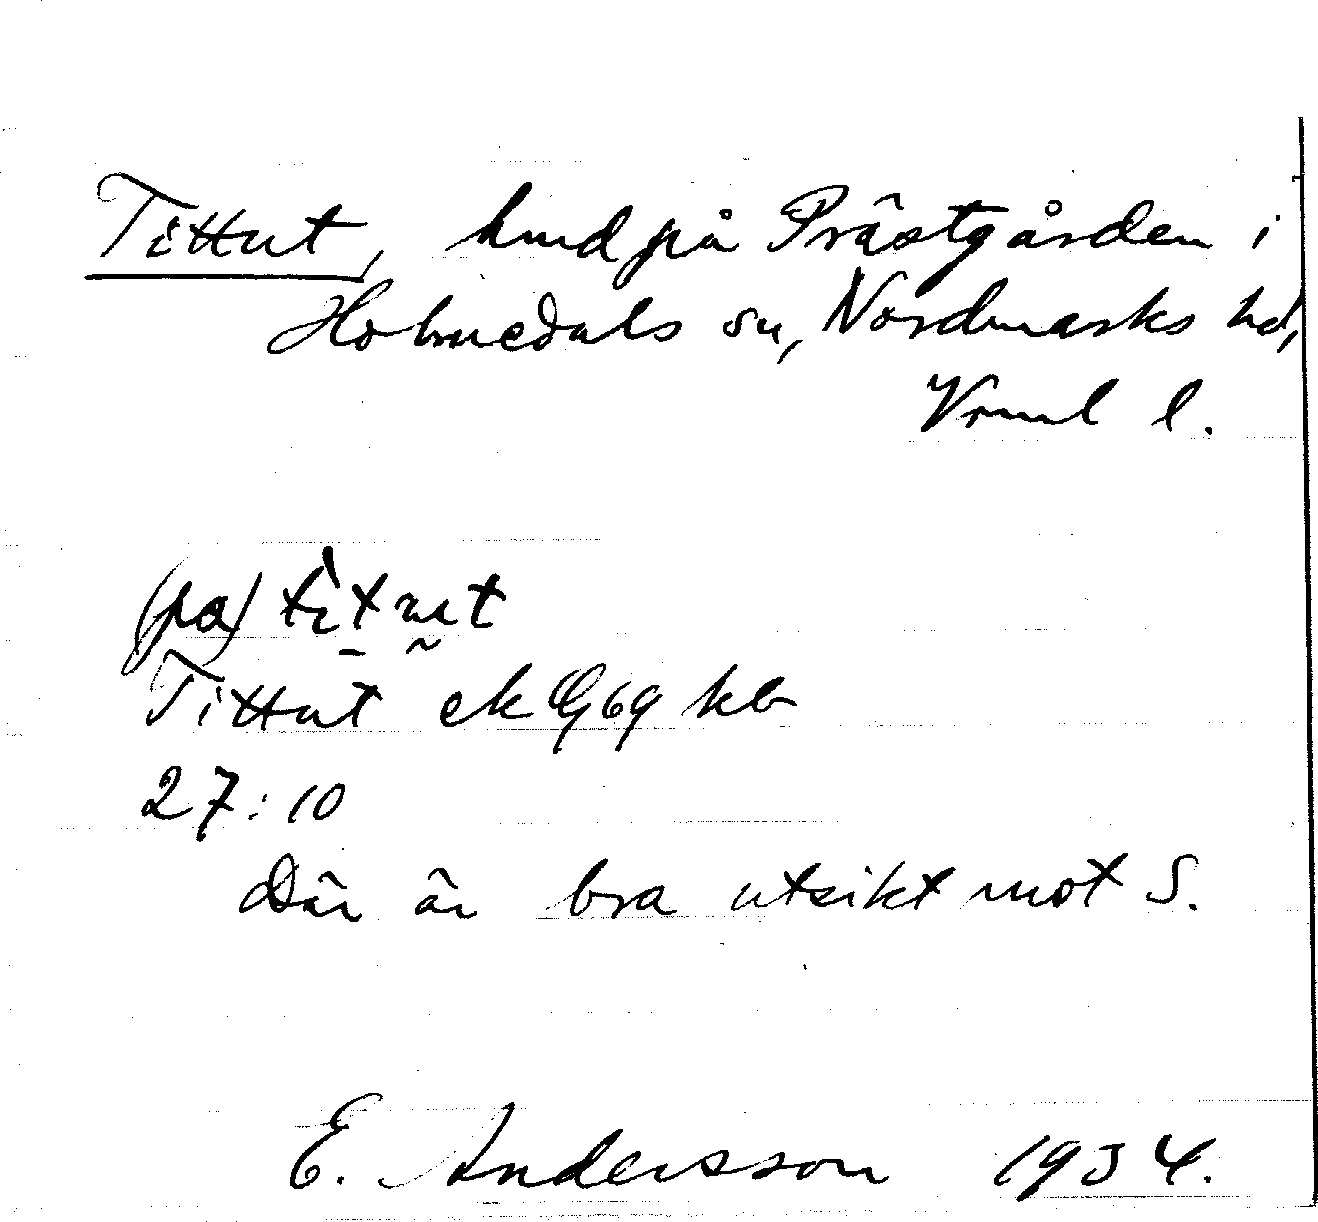 Tittut, lund på Prästgården i
Holmedals sn, Nordmarks hd,
Vrml l.
(pa) tìtut
Tittut ek G69 kb
27:10
Där är bra utsikt mot S.
E. Andersson 1934.